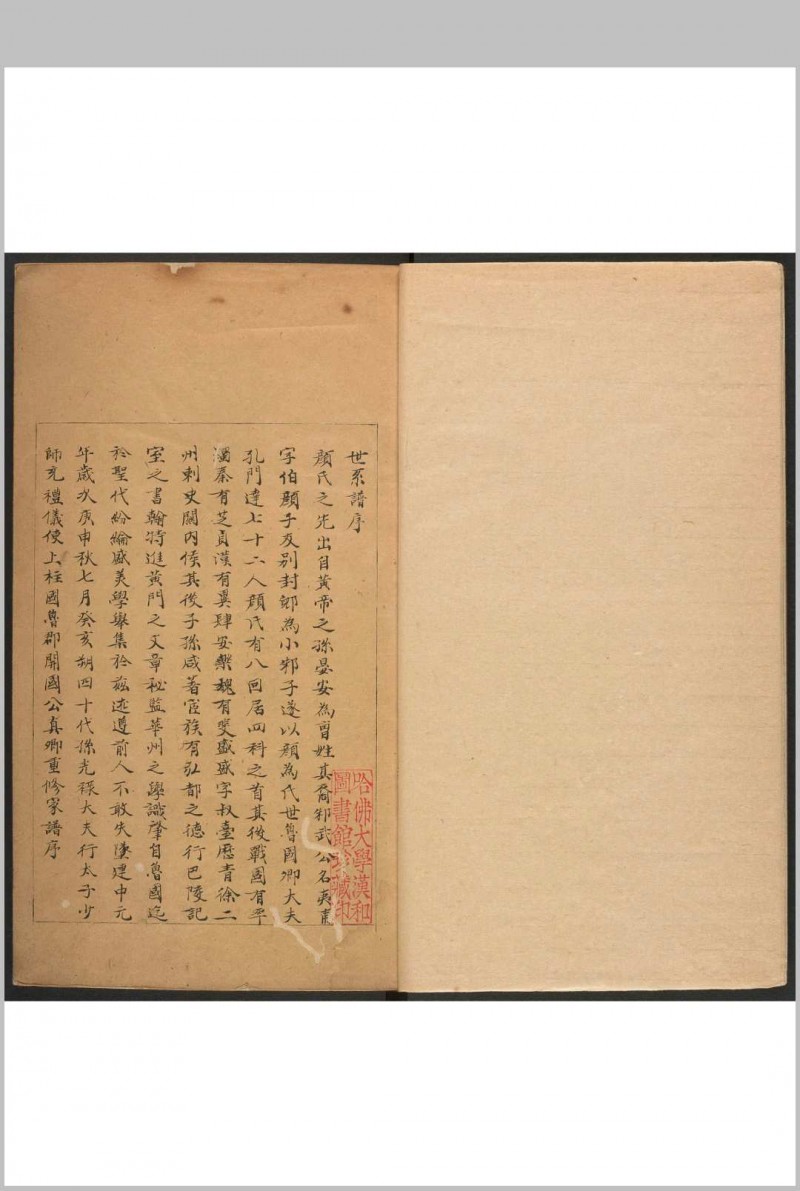 世系譜序
顏氏之先出自黃帝之孫晏安為曹姓其裔邾武公名夷甫
字伯顏子友別封郳為小邾子遂以顏為氏世魯國卿大夫
孔門達七十二人顏氏有八回居四科之首其後戰國有率
濁秦有芝貞漢有異肆安樂魏有斐盛盛字叔臺歷青徐二
州刺史關內侯其後子孫咸著宦族有弘都之德行巴陵記
室之書翰特進黃門之文章秘監華州之學識肇自魯國迄
於聖代紛綸盛美學舉集於茲迹遵前人不敢失墜建中元
年歲次庚申秋七月癸亥朔四十代孫光祿大夫行太子少
師充禮儀使上柱國魯郡開國公真卿重修家譜序
哈佛大學漢和
圖書館珍藏印